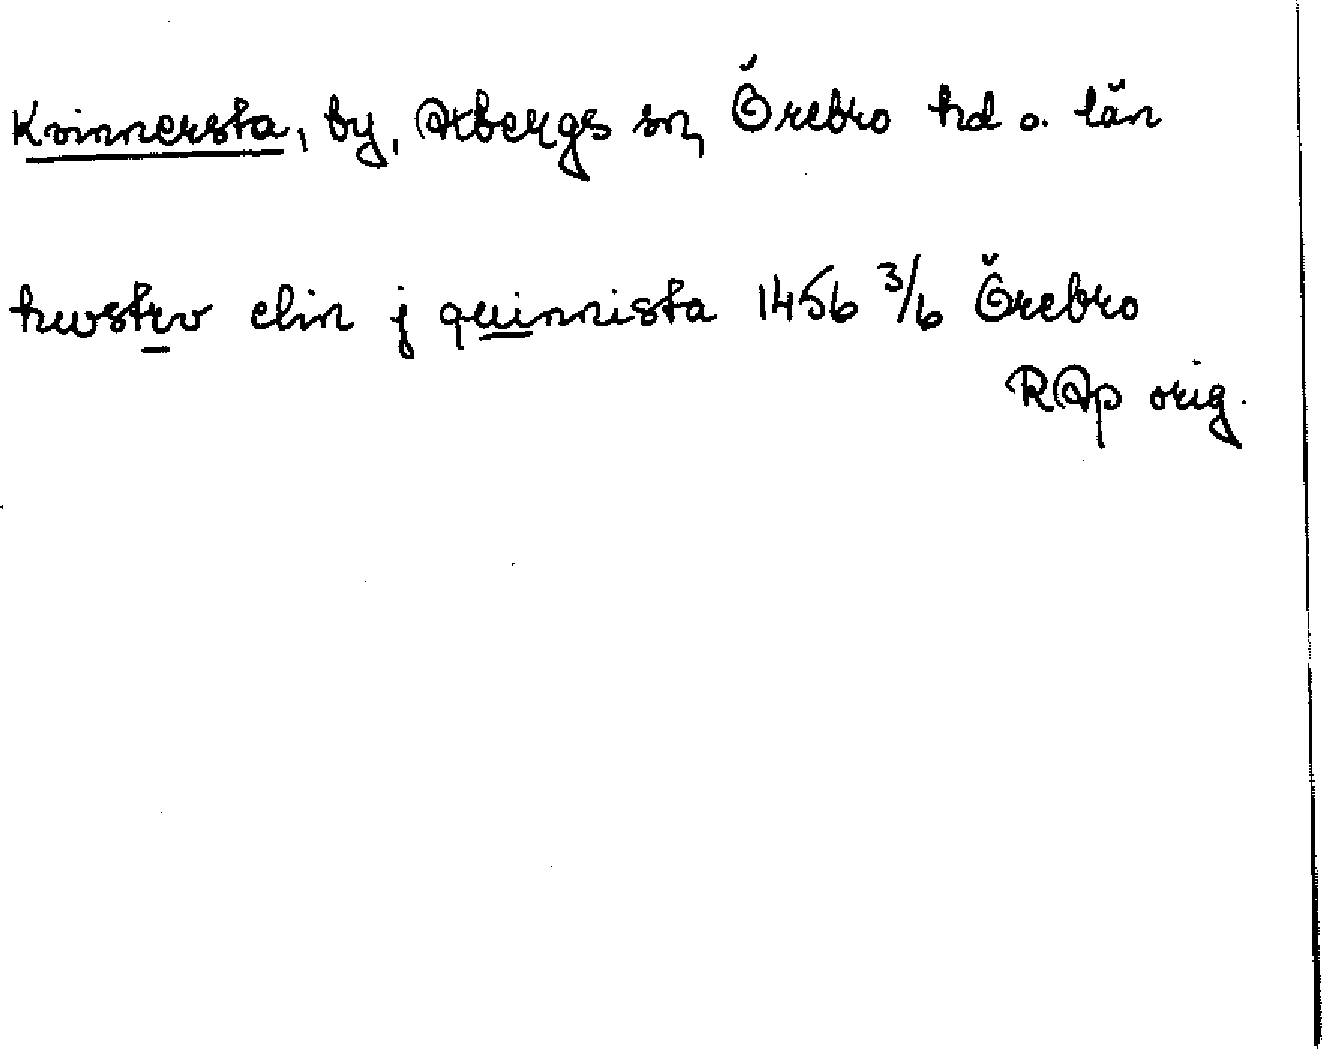 Kvinnersta, by, Axbergs sn, Örebro hd o. län
hwstrv elin j quinnista 1456 3/6 Örebro
RAp orig.